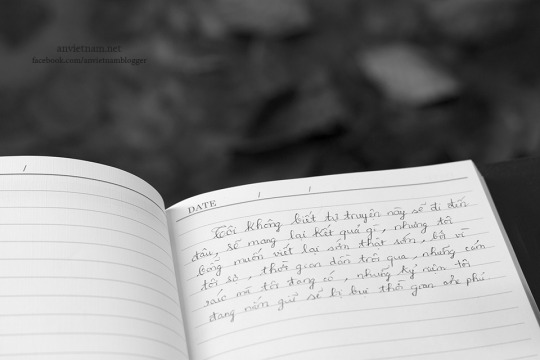 anvietnam.net
facebook.com/anvietnamblogger
/
DATE / /
Tôi không biết tự truyện này sẽ đi đến
đâu, sẽ mang lại kết quả gì, nhưng tôi
bỗng muốn viết lại sớm thật sớm, bởi vì
tôi sợ, thời gian dần trôi qua, những cảm
xúc mà tôi đang có, những ký niệm tôi
đang nắm giữ sẽ bị bụi thời gian phủ